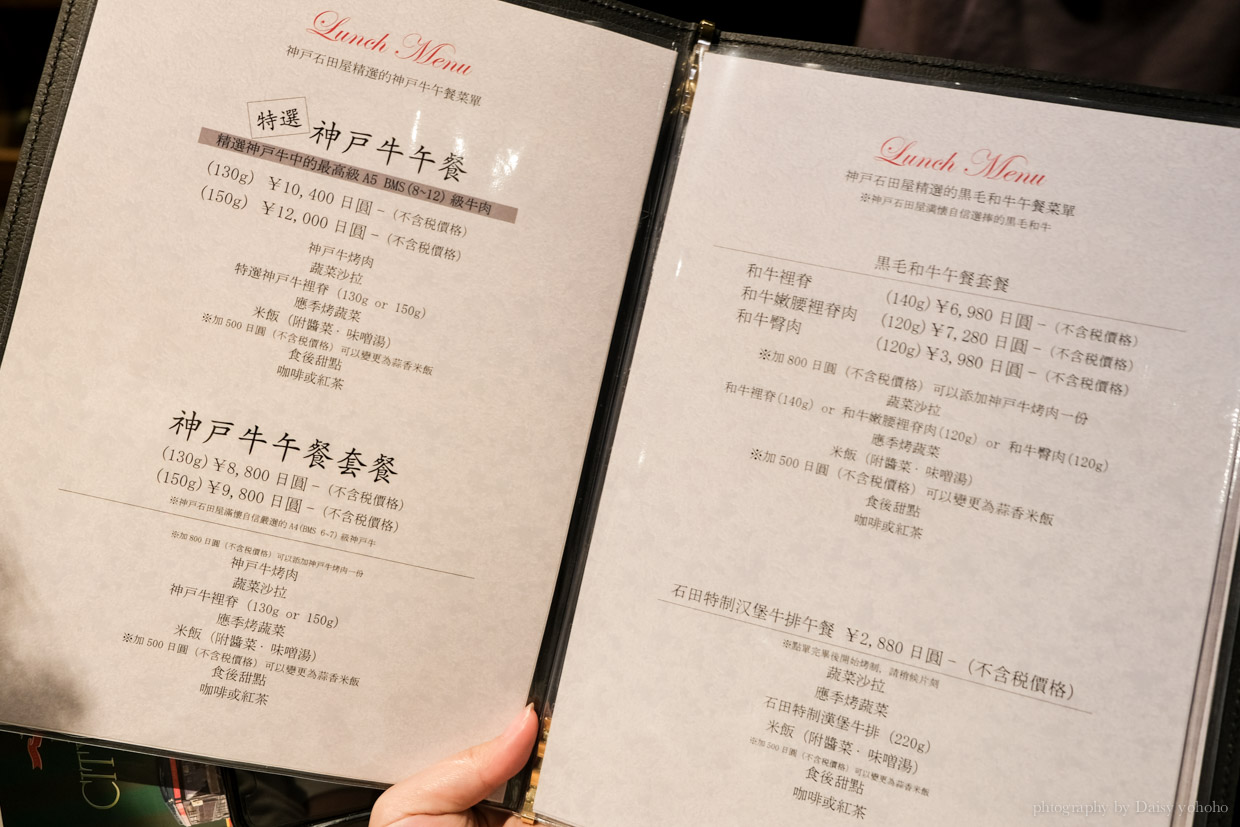 Lunch Menu
神戸石田屋精選的神戸牛午餐菜單
特選 神戸牛午餐
精選神戸牛中的最高級 A5 BMS(8~12) 級牛肉
(130g) ￥10,400 日圓 - (不含税價格)
(150g) ￥12,000 日圓 - (不含税價格)
神戸牛烤肉
蔬菜沙拉
特選神戸牛裡脊 (130g or 150g)
應季烤蔬菜
米飯 (附醬菜·味噌湯)
※加 500 日圓 (不含税價格) 可以變更為蒜香米飯
食後甜點
咖啡或紅茶
神戸牛午餐套餐
(130g) ￥8,800 日圓 - (不含税價格)
(150g) ￥9,800 日圓 - (不含税價格)
※神戸石田屋滿懷自信嚴選的 A4(BMS 6~7) 級神戸牛
※加 800 日圓 (不含税價格) 可以添加神戸牛烤肉一份
神戸牛烤肉
蔬菜沙拉
神戸牛裡脊 (130g or 150g)
應季烤蔬菜
米飯 (附醬菜·味噌湯)
※加 500 日圓 (不含税價格) 可以變更為蒜香米飯
食後甜點
咖啡或紅茶
Lunch Menu
神戸石田屋精選的黒毛和牛午餐菜單
※神戸石田屋滿懷自信選擇的黒毛和牛
黒毛和牛午餐套餐
和牛裡脊 (140g) ￥6,980 日圓 - (不含税價格)
和牛嫩腰裡脊肉 (120g) ￥7,280 日圓 - (不含税價格)
和牛臀肉 (120g) ￥3,980 日圓 - (不含税價格)
※加 800 日圓 (不含税價格) 可以添加神戸牛烤肉一份
蔬菜沙拉
和牛裡脊(140g) or 和牛嫩腰裡脊肉(120g) or 和牛臀肉(120g)
應季烤蔬菜
米飯 (附醬菜·味噌湯)
※加 500 日圓 (不含税價格) 可以變更為蒜香米飯
食後甜點
咖啡或紅茶
石田特制汉堡牛排午餐 ￥2,880 日圓 - (不含税價格)
※點單完畢後開始烤制，請稍候片刻
蔬菜沙拉
應季烤蔬菜
石田特制漢堡牛排 (220g)
米飯 (附醬菜·味噌湯)
※加 500 日圓 (不含税價格) 可以變更為蒜香米飯
食後甜點
咖啡或紅茶
CIT
photography by Daisy yohoho